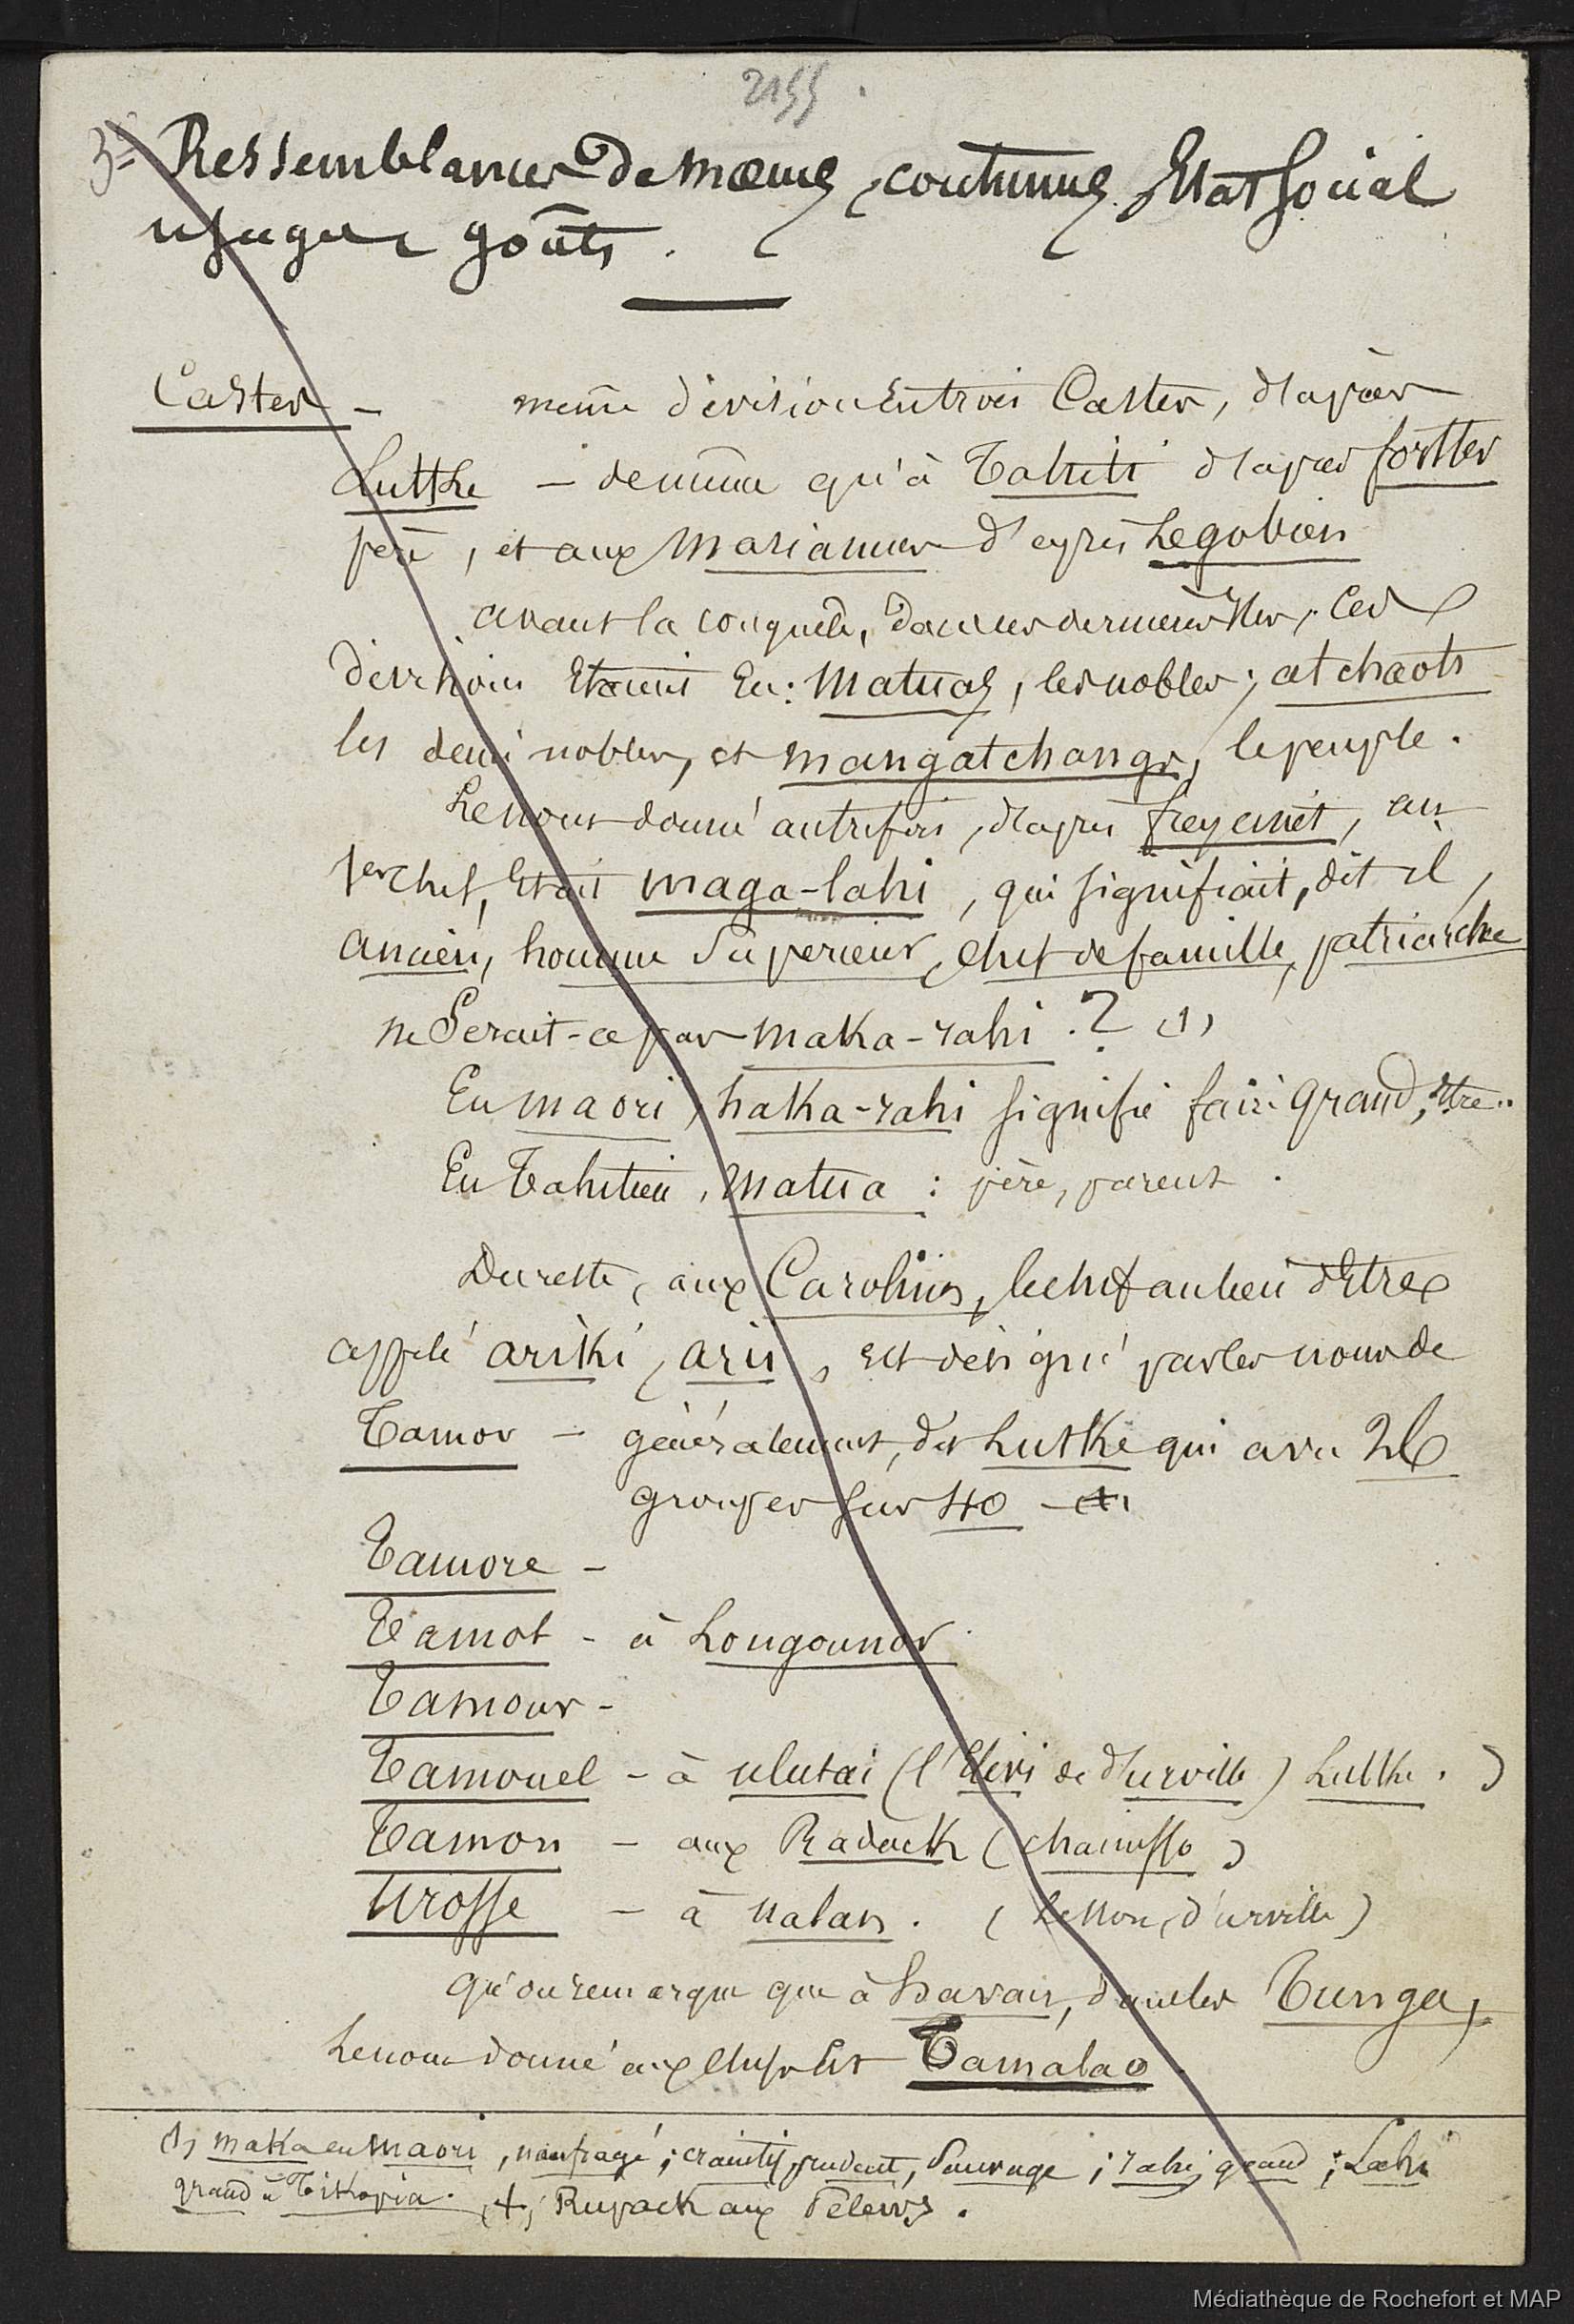 2155.
3° Ressemblances de mœurs, coutumes, Etat Social
usages goûts.
Castes - même division en trois Castes, d'après
Luttke - de même qu'à Tahiti d'après forster
père, et aux Mariannes d'après Legobien
avant la conquête, dans ces dernières Iles, Ces
divisions Etaient En : Matuas, les nobles ; atchaots
les demi nobles, et mangatchangs, le peuple.
Le nom donné autrefois, d'après freycinet, au
1er chef, Etait maga-lahi, qui signifiait, dit il,
ancien, homme Superieur, Chef de famille, patriarche
ne Serait-ce pas maka-rahi ? (1)
En maori, haka-rahi signifie faire grand, être..
En Tahitien, Matua : père, parent.
Du reste, aux Carolines, le chef au lieu d'Etre
appelé ariki, arii, est désigné par les noms de
Tamor - généralement, dit Lutke qui a vu 26
groupes sur 40 - (1)
Tamore -
Tamol - à Lougounor.
Tamour -
Tamouel - à ulutai (l'Elivi de d'urville) Lutke.)
Tamon - aux Radack (Chamisso)
Urosse - à ualan. (Lesson, d'urville)
qu'on remarque que à havaii, dans les Tunga,
Le nom donné aux Chefs Est Tamalao.
(1) maka en Maori, naufragé ; craintif, prudent, Sauvage ; rahi, grand ; Lahi
grand à Tikopia. (+) Rupack aux Pelews.